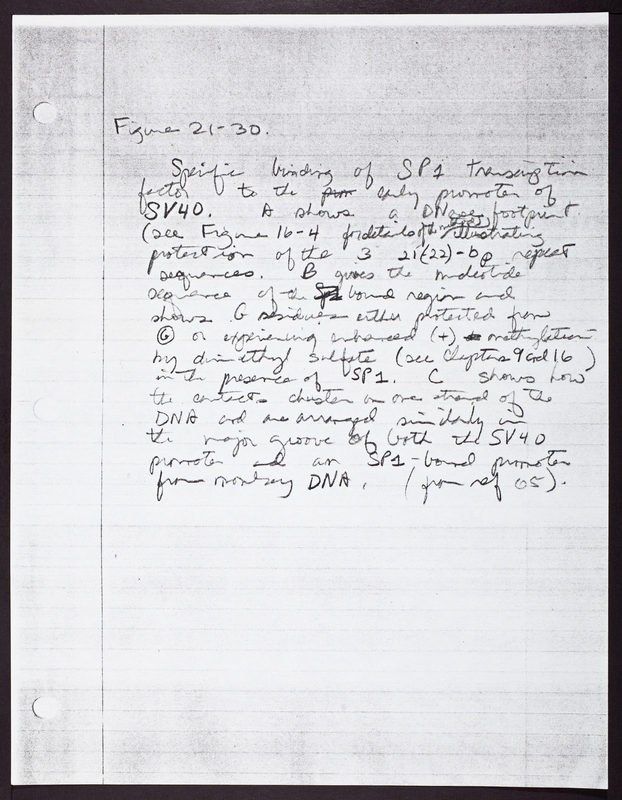 Figure 21-30.
Specific binding of SP1 transcription
factor to the early promoter of
SV40. A shows a DNase footprint
(see Figure 16-4 for details of the method) illustrating
protection of the 3 21(22)-bp repeat
sequences. B gives the nucleotide
sequence of the bound region and
shows G residues either protected from
Ⓖ or experiencing enhanced (+) methylation
by dimethyl sulfate (see Chapters 9 and 16)
in the presence of SP1. C shows how
the contacts cluster on one strand of the
DNA and are arranged similarly in
the major groove of both the SV40
promoter and an SP1-bound promoter
from monkey DNA. (from ref 05).